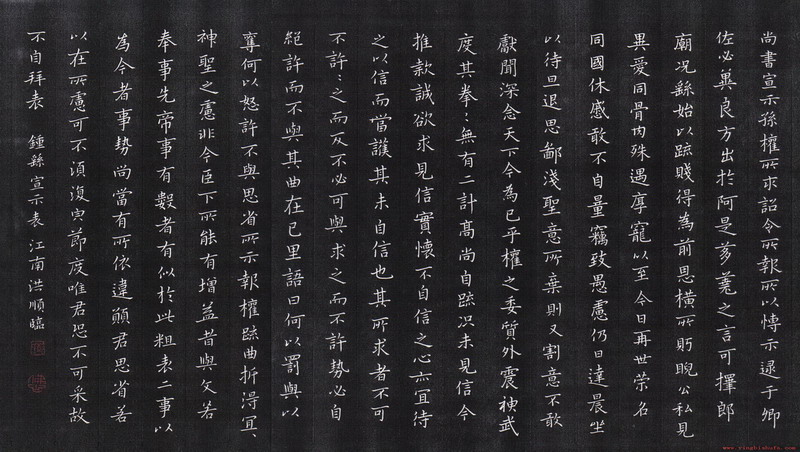 尚書宣示孫權所求詔令所報所以博示逮于卿
佐必冀良方出於阿是芻蕘之言可擇郎
廟況繇始以疏賤得為前恩橫所眄睨公私見
異愛同骨肉殊遇厚寵以至今日再世榮名
同國休慼敢不自量竊致愚慮仍日達晨坐
以待旦退思鄙淺聖意所棄則又割意不敢
獻聞深念天下今為已平權之委質外震神武
度其拳:無有二計高尚自疏況未見信今
推款誠欲求見信實懷不自信之心亦宜待
之以信而當護其未自信也其所求者不可
不許:之而反不必可與求之而不許勢必自
絕許而不與其曲在己里語曰何以罰與以
奪何以怒許不與思省所示報權疏曲折得宜、
神聖之慮非今臣下所能有增益昔與文若
奉事先帝事有數者有似於此粗表二事以
為今者事勢尚當有所依違願君思省若
以在所慮可不須復定節度唯君恐不可采故
不自拜表 鍾繇宣示表 江南洪順臨
www.yingbishufa.com